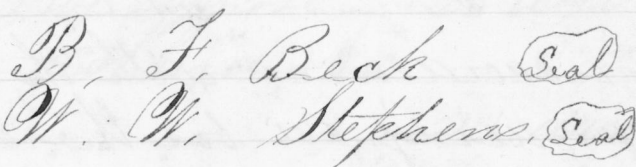 B. F. Beck Seal
W. W. Stephens. Seal